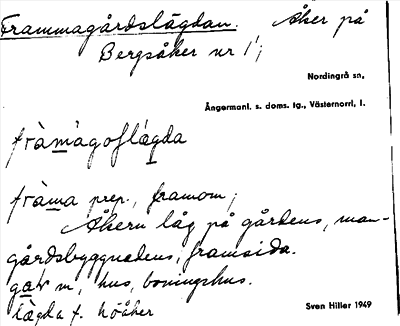 Frammagårdslägdan. Åker på
Bergsåker nr 1;
Nordingrå sn,
Ångermanl. s. doms. tg., Västernorrl. l.
fràmàgoſlǽgda
fràma prep., framom;
Åkern låg på gårdens, man-
gårdsbyggnadens, framsida.
gaṛ m, hus, boningshus.
lägda f. höåker
Sven Hiller 1949